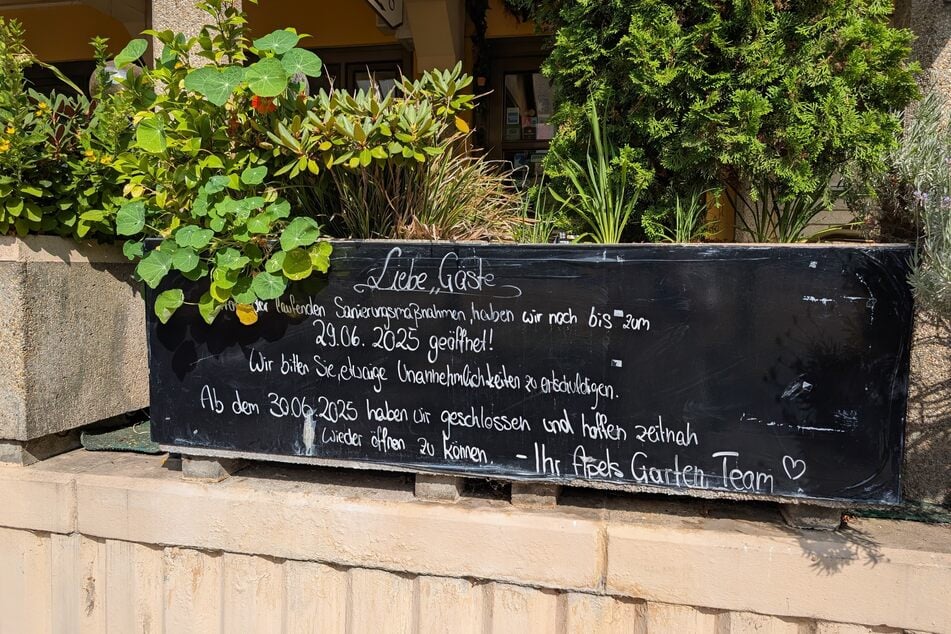 Liebe Gäste
der laufenden Sanierungsmaßnahmen, haben wir noch bis zum
29.06. 2025 geöffnet!
Wir bitten Sie, etwaige Unannehmlichkeiten zu entschuldigen.
Ab dem 30.06.2025 haben wir geschlossen und hoffen zeitnah
wieder öffnen zu können. - Ihr Apels Garten Team ♡